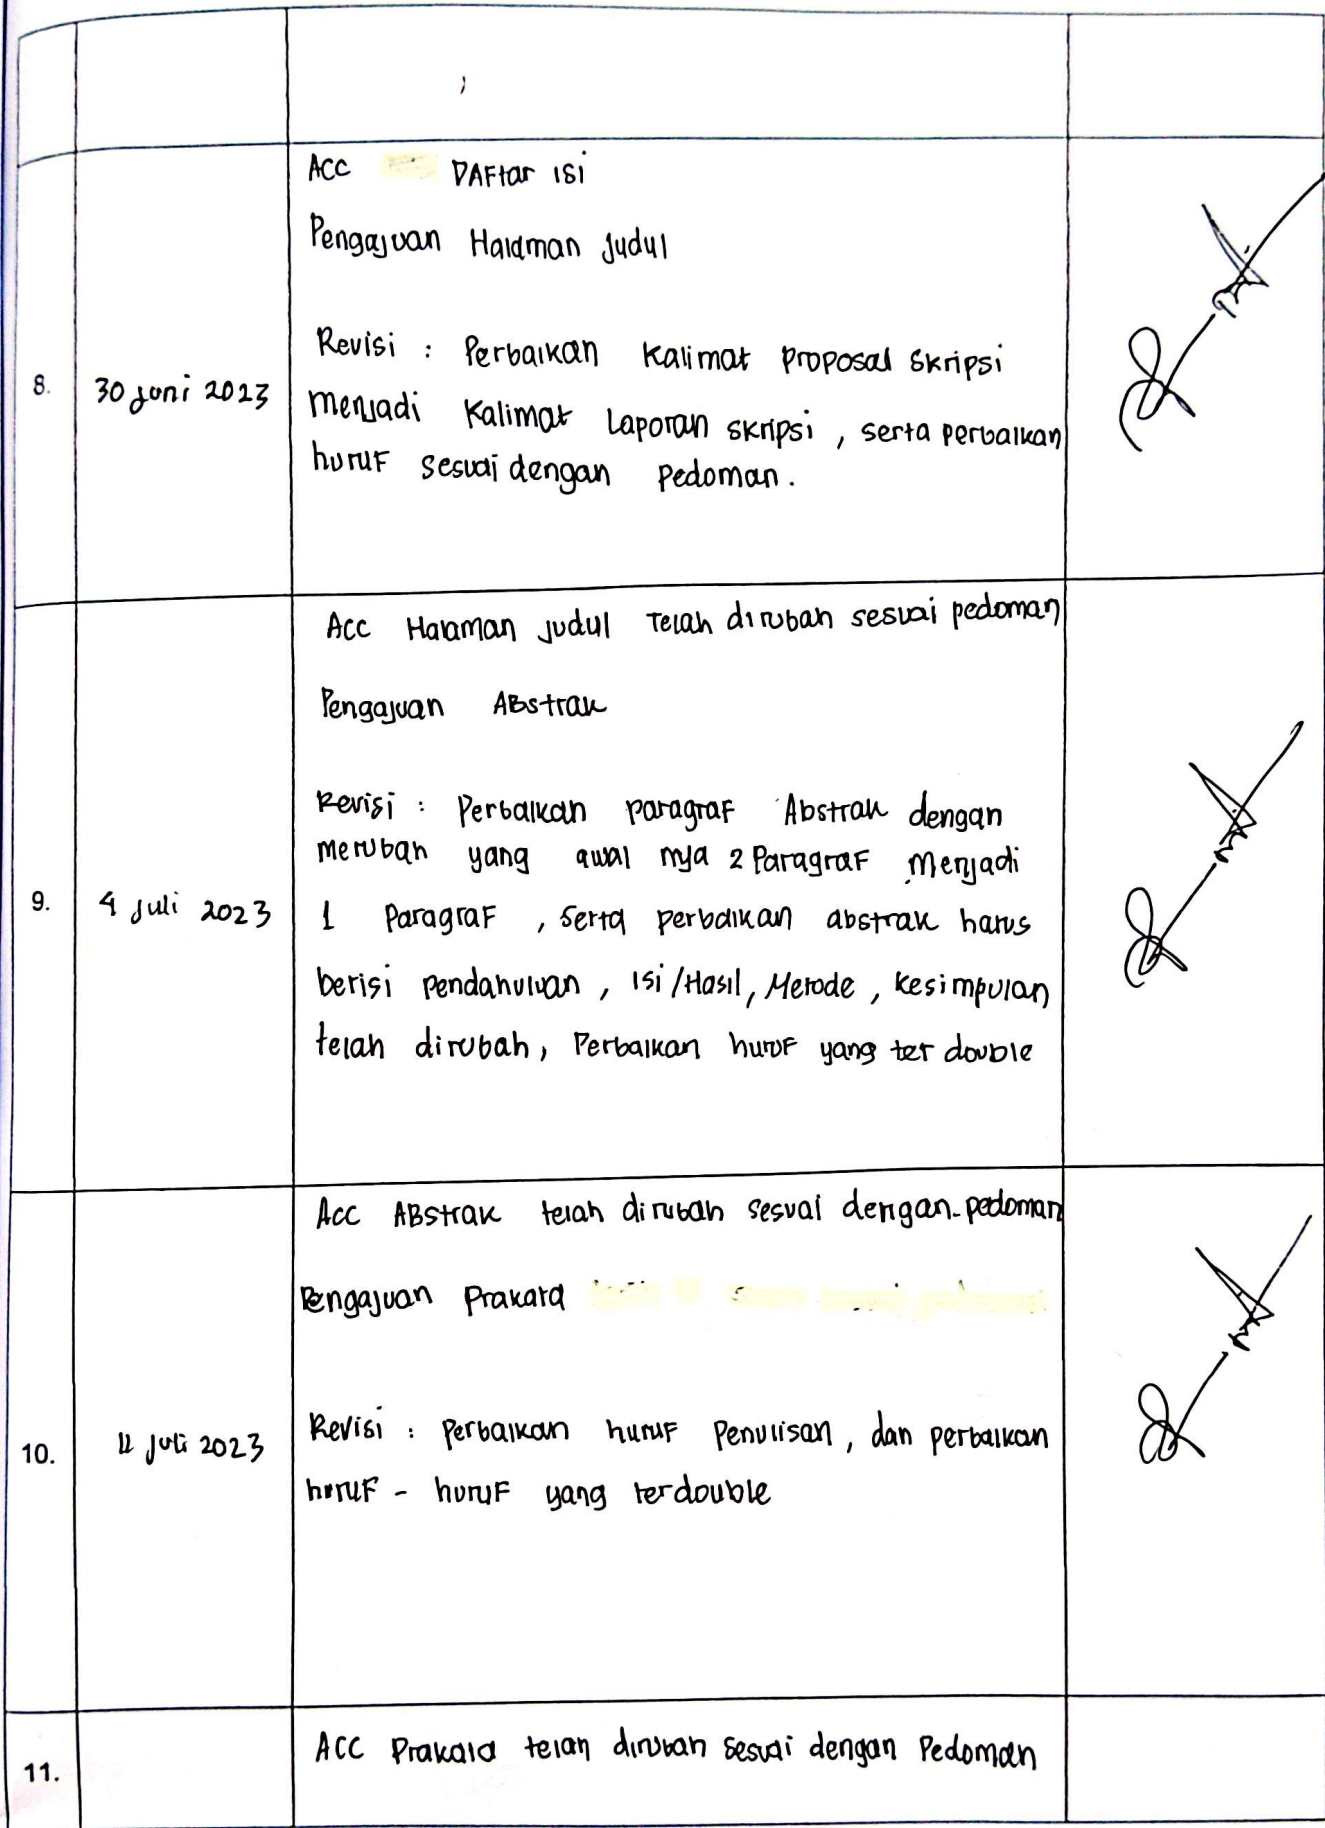 ACC DAFtar isi
Pengajuan Halaman Judul
Revisi : Perbaikan Kalimat proposal skripsi
8. 30 Juni 2023
menjadi Kalimat Laporan skripsi , serta perbaikan
huruf sesuai dengan Pedoman .
Acc Halaman Judul Telah dirubah sesuai pedoman
Pengajuan ABstrak
Revisi : Perbaikan paragraf Abstrak dengan
merubah yang awal nya 2 Paragraf Menjadi
9. 4 Juli 2023
1 Paragraf , Serta perbaikan abstrak harus
berisi pendahuluan , isi/Hasil, Metode , kesimpulan
telah dirubah, Perbaikan huruf yang ter double
Acc ABstrak telah dirubah sesuai dengan pedoman
Pengajuan Prakata
Revisi : Perbaikan huruf Penulisan, dan perbaikan
10. 11 Juli 2023
huruf - huruf yang terdouble
ACC Prakata telah dirubah sesuai dengan Pedoman
11.